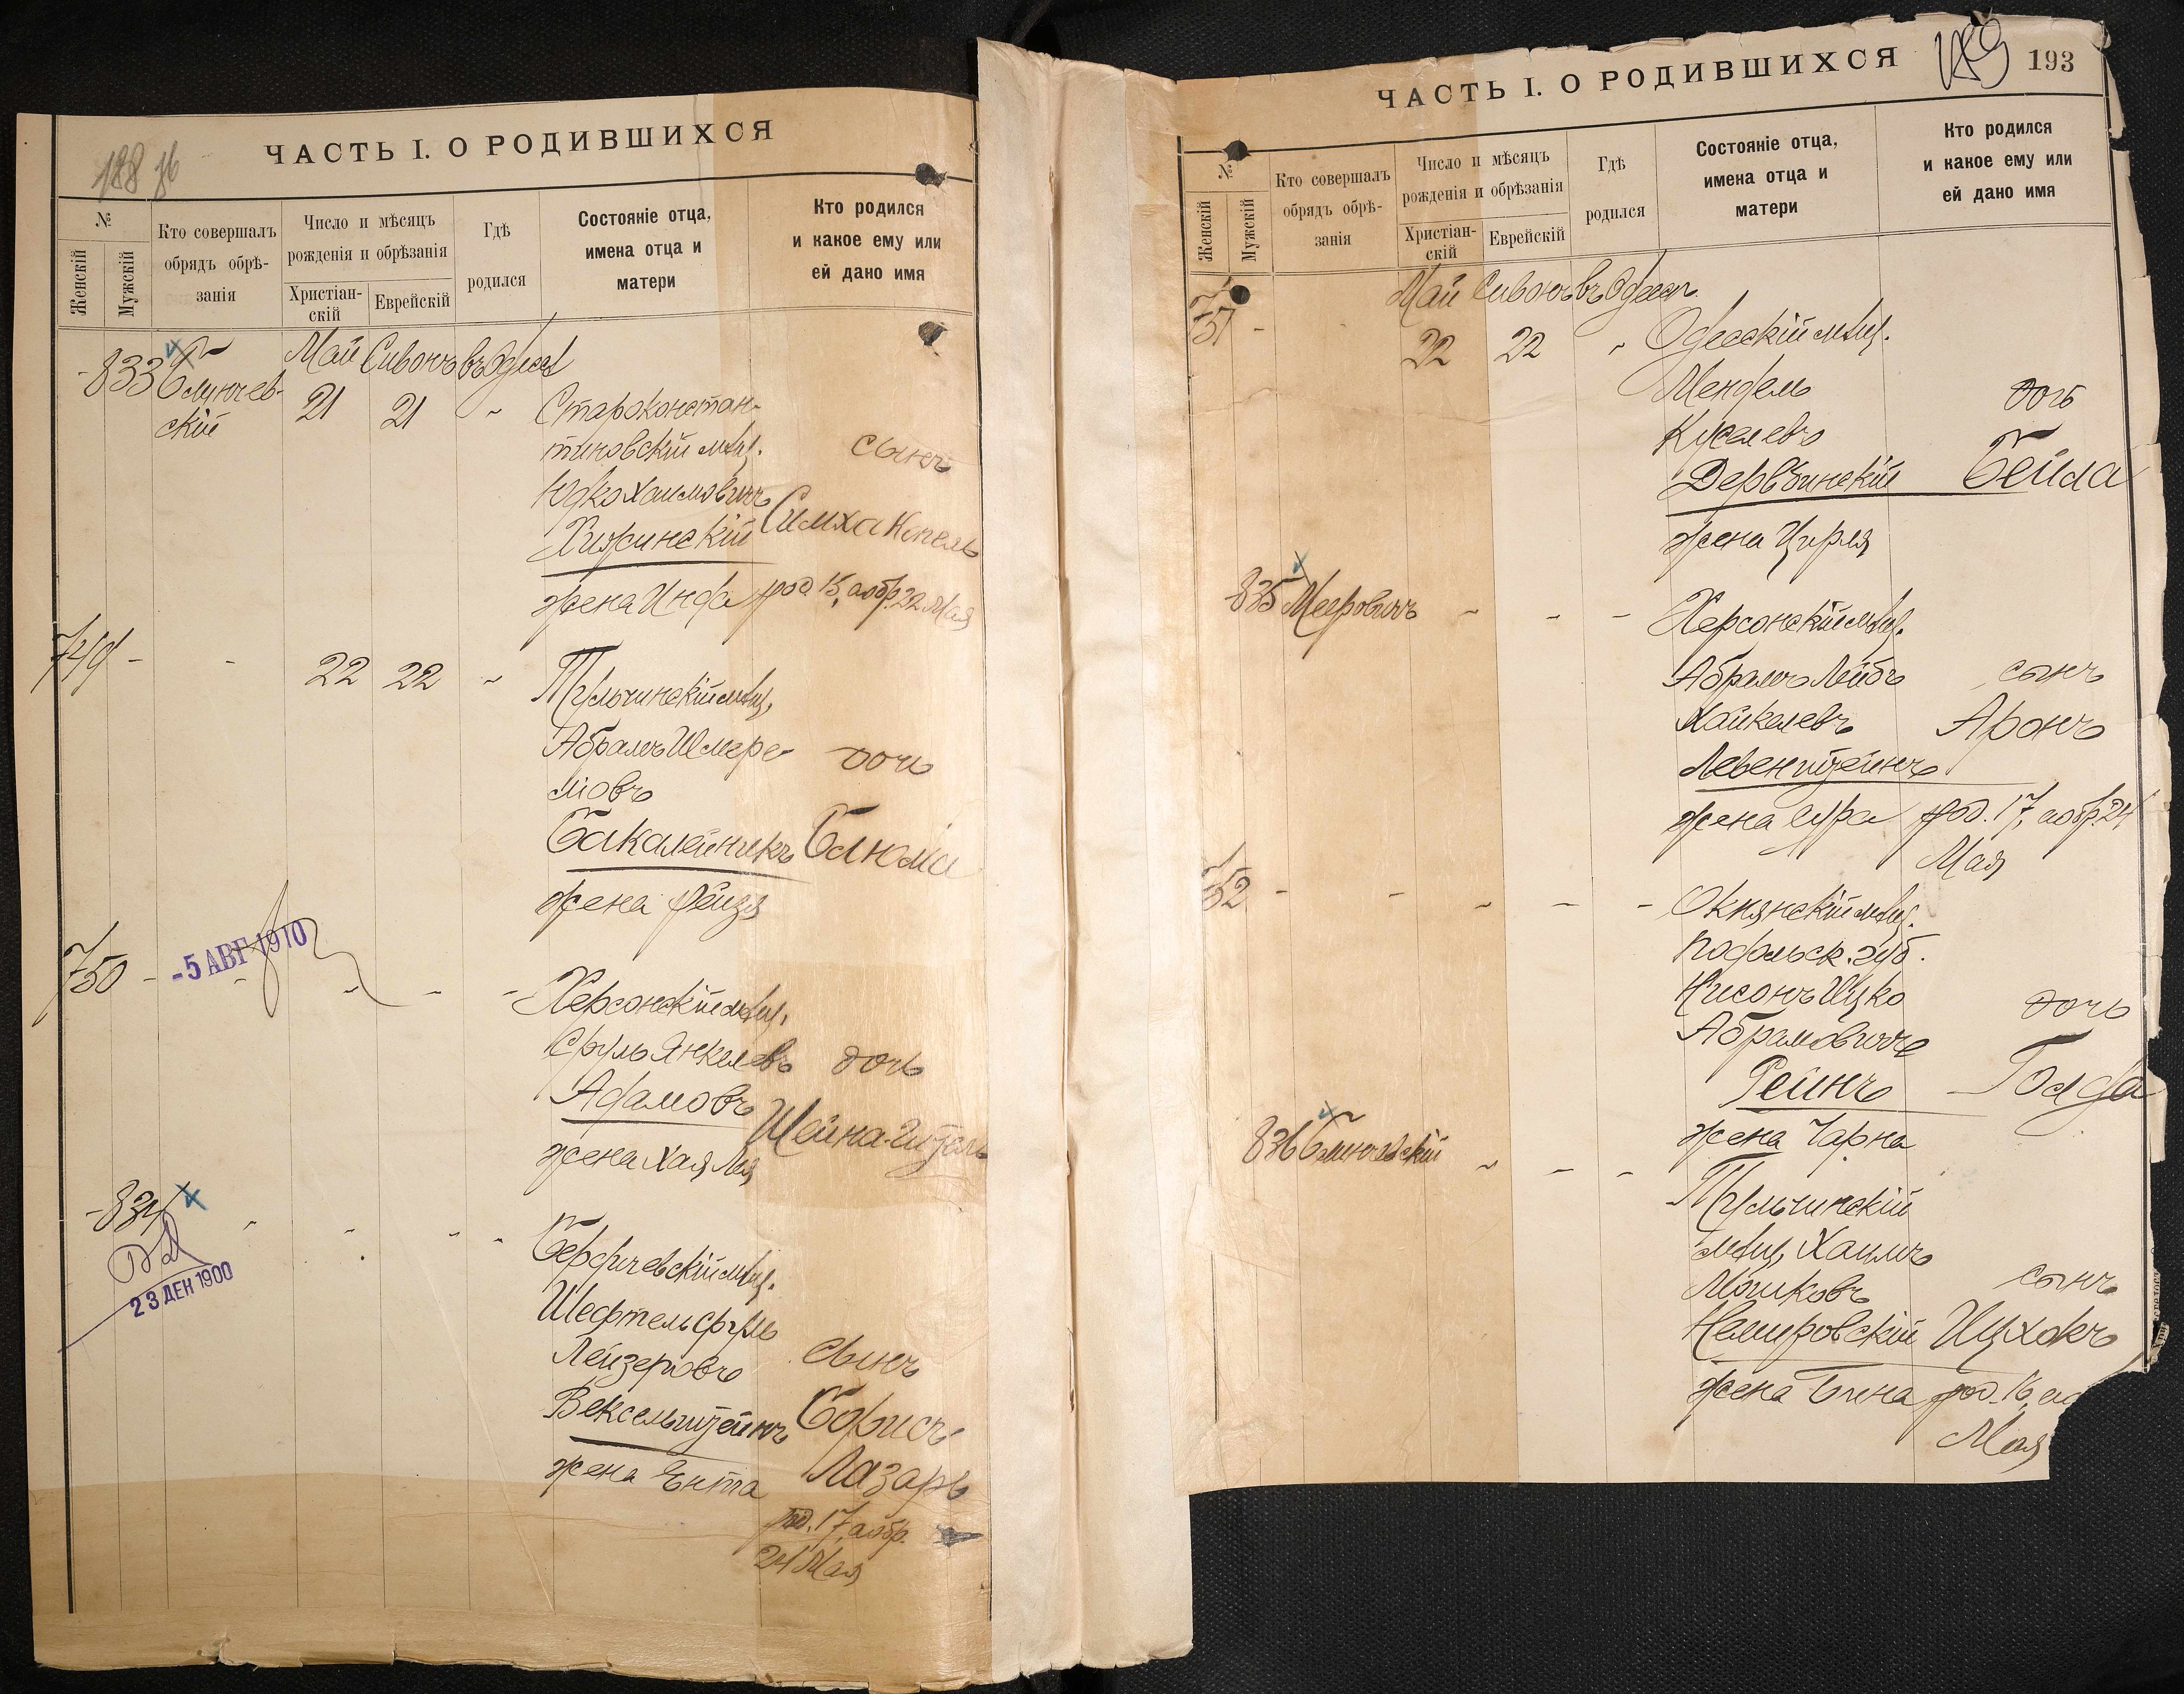 188 об
ЧАСТЬ I. О РОДИВШИХСЯ
№
Женскій
Мужскій
Кто совершалъ
обрядъ обрѣ-
занія
Число и мѣсяцъ
рожденія и обрѣзанія
Христіан-
скій
Еврейскій
Гдѣ
родился
Состояніе отца,
имена отца и
матери
Кто родился
и какое ему или
ей дано имя
Май Сивонъ въ Одессѣ
833 Блинчев-
скій
21 21
Староконстан-
тиновскій мѣщ.
Юдко Хаимовичъ
Хижинскій
жена Инда
сынъ
Симха Копель
род 15, а обр. 22 Мая
749 - - 22 22
Тульчинскій мѣщ.
Абрамъ Шмере-
ліовъ
Бакалейникъ
жена Рейзя
дочь
Блюма
750 -
-5 АВГ 1910
Херсонскій мѣщ.
Сруль Янкелевъ
Адамовъ
жена Хая Лея
дочь
Шейна-Гитель
834
23 ДЕК 1900
Бердичевскій мѣщ.
Шефтель Сруль
Лейзеровъ
Вексельштейнъ
жена Ента
сынъ
Борисъ
Лазарь
род. 17, а обр.
24 Мая
189
193
ЧАСТЬ I. О РОДИВШИХСЯ
№
Женскій
Мужскій
Кто совершалъ
обрядъ обрѣ-
занія
Число и мѣсяцъ
рожденія и обрѣзанія
Христіан-
скій
Еврейскій
Гдѣ
родился
Состояніе отца,
имена отца и
матери
Кто родился
и какое ему или
ей дано имя
Май Сивонъ въ Одессѣ
751 - 22 22
Одесскій мѣщ.
Мендель
Киселевъ
жена Цирля
дочь
Бейла
835 Мееровичъ - - -
Херсонскій мѣщ.
Абрамъ Лейбъ
Хайкелевъ
Левенштейнъ
жена Сура
сынъ
Аронъ
род. 17, а обр. 24
Мая
752 - - - - -
Окнянскій мѣщ.
Подольск. губ.
Нисонъ Ицко
Абрамовичъ
Рейнъ
жена Чарна
дочь
Голда
836 Блинчевскій - - -
Тульчинскій
мѣщ. Хаимъ
Мошковъ
Немировскій
жена Бина
сынъ
Ицхокъ
род. 16, а
Мая